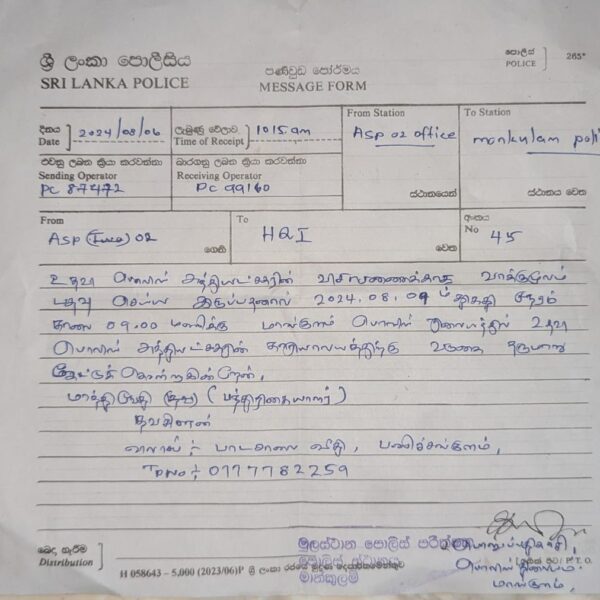 ශ්‍රී ලංකා පොලීසිය
SRI LANKA POLICE
පණිවුඩ පෝර්මය
MESSAGE FORM
පොලිස්
POLICE
265
දිනය
Date
2024/08/06
ලැබුණු වේලාව
Time of Receipt
1015am
From Station
ASP 02 office
ස්ථානයෙන්
To Station
mankulam poli
ස්ථානය වෙත
එවනු ලබන ක්‍රියා කරවන්නා
Sending Operator
PC 87472
බාරගනු ලබන ක්‍රියා කරවන්නා
Receiving Operator
PC 99160
From
ASP 02
ගෙනි
To
HQI
වෙත
අංකය
No 45
உதவி பொலிஸ் அத்தியட்சகரின் விசாரணைக்காக வாக்குமூலம்
பதிவு செய்ய இருப்பதனால் 2024.08.09 ம் திகதி நேரம்
காலை 09.00 மணிக்கு மாங்குளம் பொலிஸ் நிலையத்தில் உதவி
பொலிஸ் அத்தியட்சகரின் காரியாலயத்திற்கு வருகை தருமாறு
கேட்டுக் கொள்கின்றேன்.
(பத்திரிகையாளர்)
தவசீலன்
பாடசாலை வீதி,
0777782259
බෙදා හැරීම
Distribution
H 058643 - 5,000 (2023/06)P ශ්‍රී ලංකා රජයේ මුද්‍රණ දෙපාර්තමේන්තුව
මූලස්ථාන පොලිස් පරීක්ෂක
පොලිස් ස්ථානය
මාන්කුලම්
பொறுப்பதிகாரி,
பொலிஸ் நிலையம்
மாங்குளம்,
P.T.O.